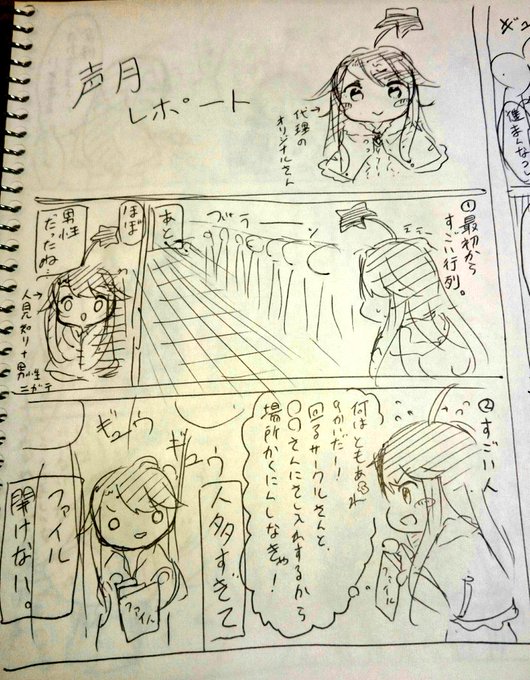 声月
レポート
代理の
オリジナルさん
①最初から
すごい行列。
ブラーン
あと、
ほぼ
男性
だったね…
人見知り+男性
ニガテ
②すごい人
何はともあれ
回るサークルさんと、
〇〇さんにさし入れするから
場所かくにんしなきゃ!
ファイル
人多すぎて
ギュウ
ギュウ
ファイル
ファイル
開けない。